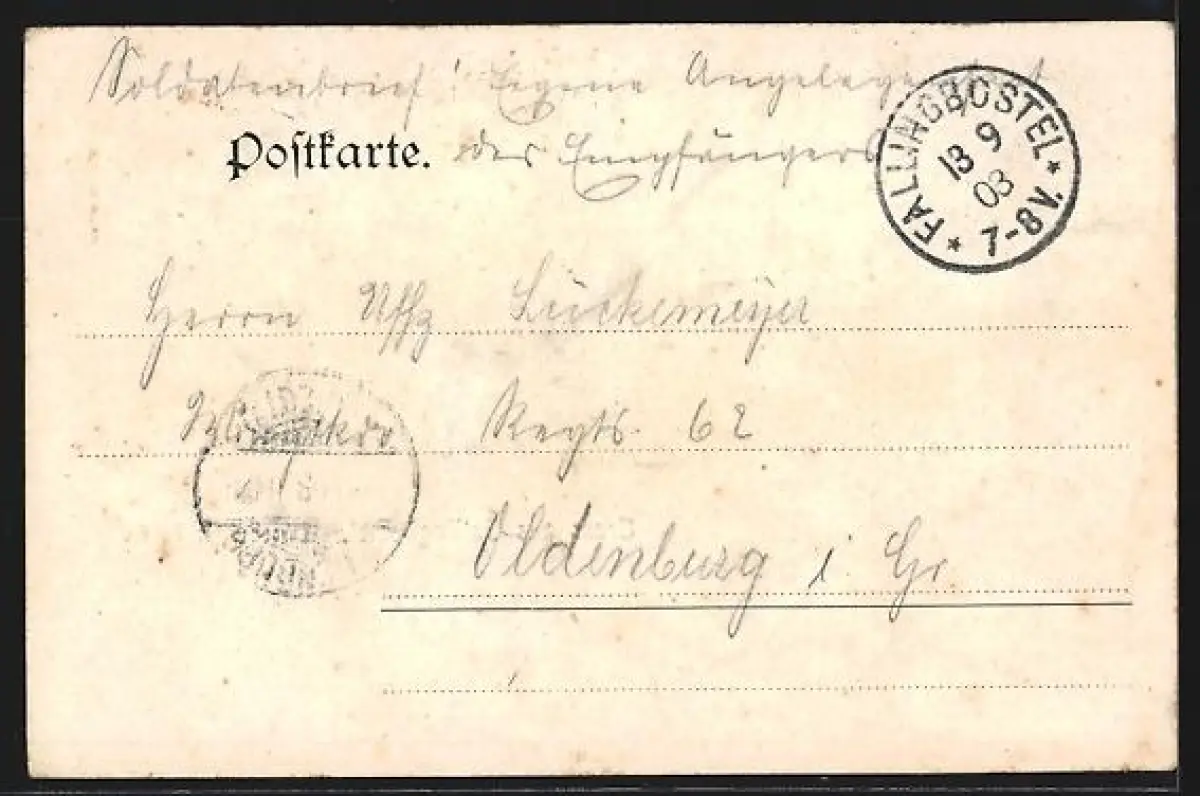 Soldatenbrief! Eigene Angelegenheit
Postkarte. des Empfängers
FALLINGBOSTEL
13 9
03
7-8V.
Herrn Uffz Lückemeyer
Regts. 62
Oldenburg i. Gr